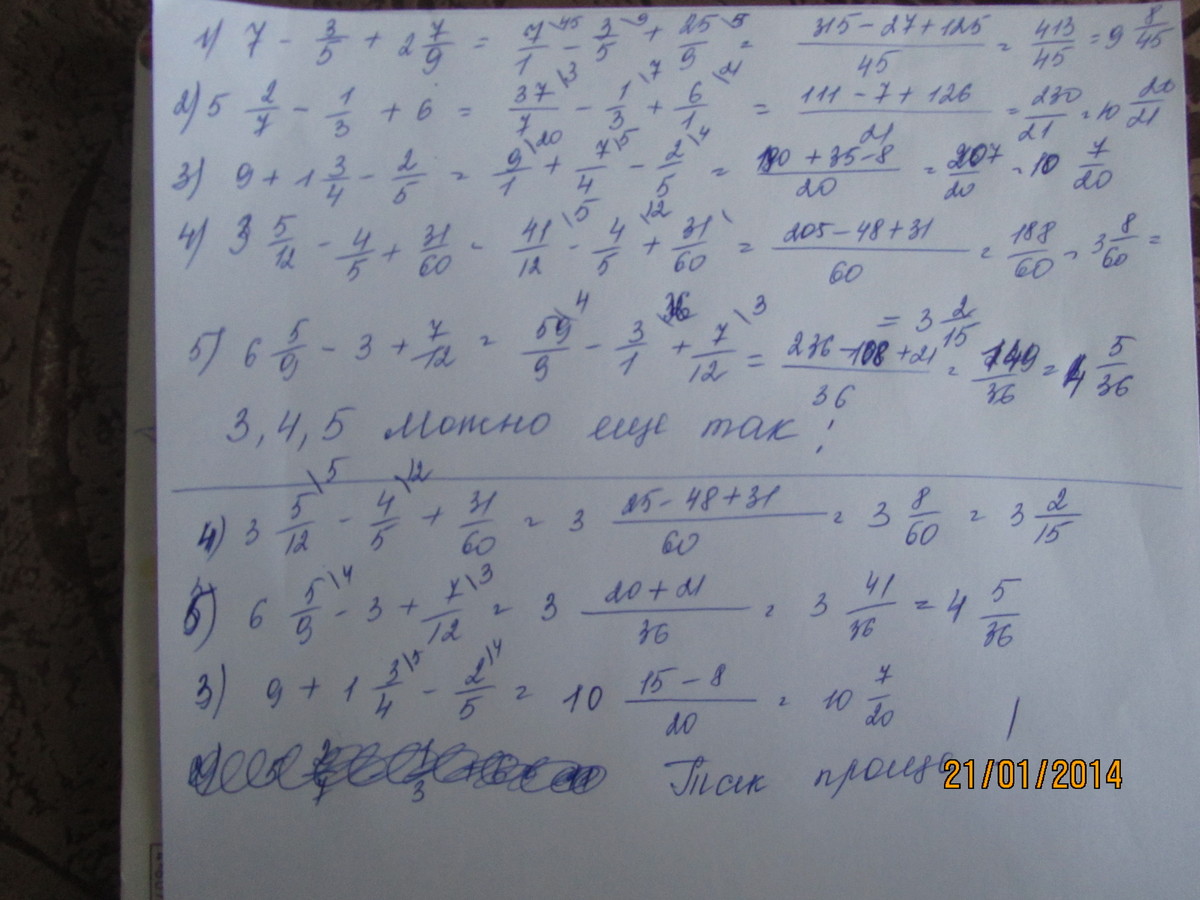 1) 7 - 3/5 + 2 7/9 = 7/1 \45 - 3/5 \9 + 25/9 \5 = (315 - 27 + 125)/45 = 413/45 = 9 8/45
2) 5 2/7 - 1/3 + 6 = 37/7 \3 - 1/3 \7 + 6/1 \21 = (111 - 7 + 126)/21 = 230/21 = 10 20/21
3) 9 + 1 3/4 - 2/5 = 9/1 \20 + 7/4 \5 - 2/5 \4 = (180 + 35 - 8)/20 = 207/20 = 10 7/20
4) 3 5/12 - 4/5 + 31/60 = 41/12 \5 - 4/5 \12 + 31/60 \ = (205 - 48 + 31)/60 = 188/60 = 3 8/60 =
= 3 2/15
5) 6 5/9 - 3 + 7/12 = 59/9 \4 - 3/1 \36 + 7/12 \3 = (236 - 108 + 21)/36 = 149/36 = 4 5/36
3, 4, 5 можно еще так :
4) 3 5/12 \5 - 4/5 \12 + 31/60 = 3 (25 - 48 + 31)/60 = 3 8/60 = 3 2/15
5) 6 5/9 \4 - 3 + 7/12 \3 = 3 (20 + 21)/36 = 3 41/36 = 4 5/36
3) 9 + 1 3/4 \5 - 2/5 \4 = 10 (15 - 8)/20 = 10 7/20
Так проще
21/01/2014